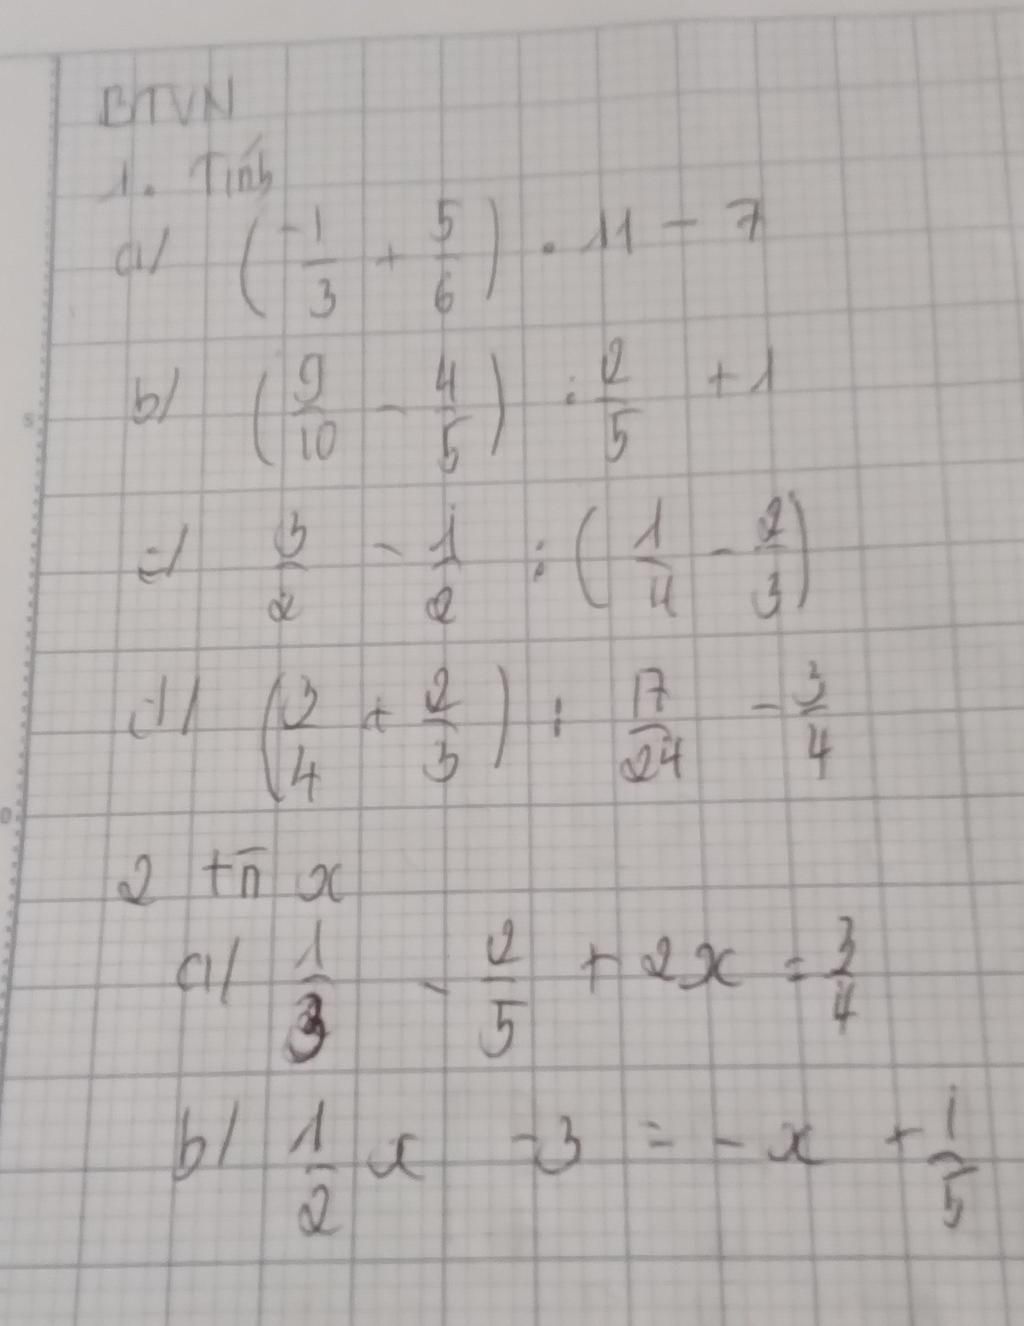 BTVN
1. Tính
a/ (-1/3 + 5/6) . 11 - 7
b/ (9/10 - 4/5) : 2/5 + 1
c/ 3/2 - 1/2 : (1/4 - 2/3)
d/ (3/4 + 2/3) : 17/24 - 3/4
2 tìm x
a/ 1/3 - 2/5 + 2x = 3/4
b/ 1/2 x - 3 = - x + 1/5